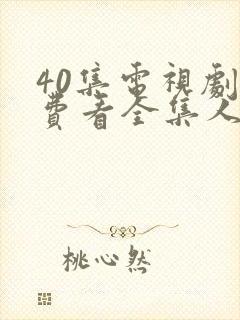 40集電視劇
費看全集人
桃心然